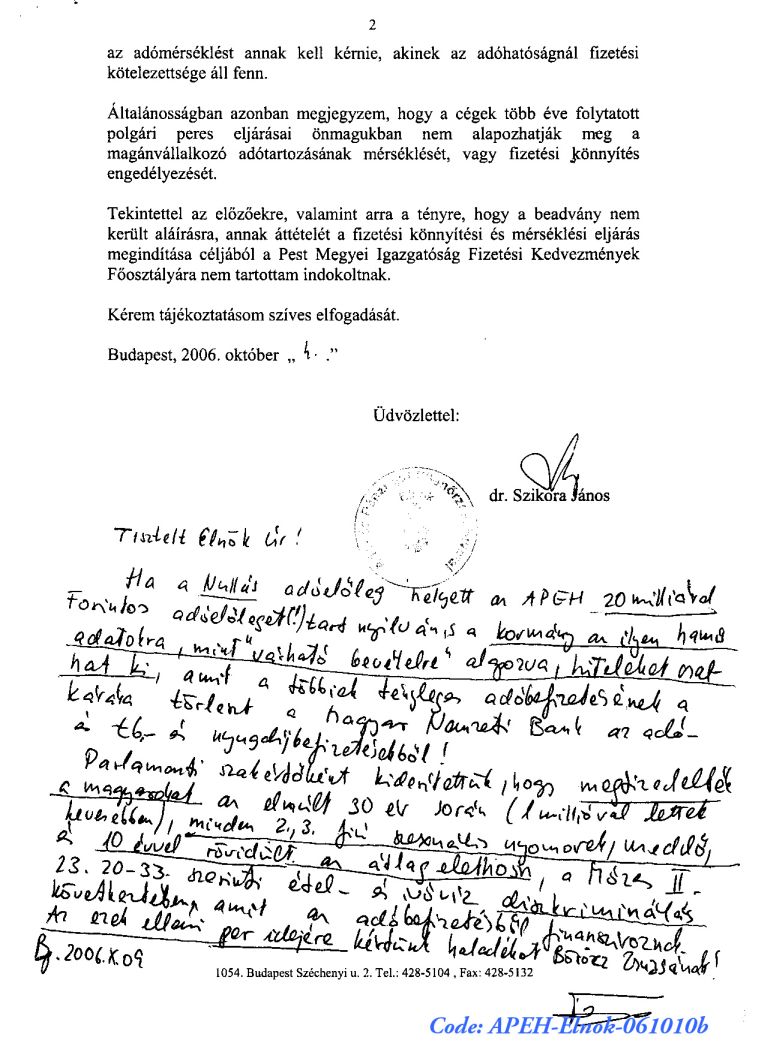 2
az adómérséklést annak kell kérnie, akinek az adóhatóságnál fizetési
kötelezettsége áll fenn.
Általánosságban azonban megjegyzem, hogy a cégek több éve folytatott
polgári peres eljárásai önmagukban nem alapozhatják meg a
magánvállalkozó adótartozásának mérséklését, vagy fizetési könnyítés
engedélyezését.
Tekintettel az előzőekre, valamint arra a tényre, hogy a beadvány nem
került aláírásra, annak áttételét a fizetési könnyítési és mérséklési eljárás
megindítása céljából a Pest Megyei Igazgatóság Fizetési Kedvezmények
Főosztályára nem tartottam indokoltnak.
Kérem tájékoztatásom szíves elfogadását.
Budapest, 2006. október „ 4. .”
Üdvözlettel:
dr. Szikora János
Tisztelt Elnök Úr!
Ha a Nullás adóelőleg helyett az APEH 20 milliárd
Forintos adóelőleget(!) tart nyilván, s a kormány az ilyen hamis
adatokra, mint "várható bevételre" alapozva, hiteleket oszt
hat ki, amit a többiek tényleges adóbefizetésének a
kárára törleszt a Magyar Nemzeti Bank az adó-
á tb,- és nyugdíjbefizetésekből!
Parlamenti szakértőként kiderítettük, hogy megtizedelték
a magyarokat az elmúlt 30 év során (1 millióval lettek
kevesebben), minden 2., 3. fiú szexuális nyomorék, meddő,
á 10 évvel rövidült az átlag élethossz, a Mózes II.
23. 20-33. szerinti étel- és ivóvíz diszkriminálás
következtében, amit az adóbefizetésből finanszíroznak.
Az ezek elleni per idejére kértünk haladékot Böröcz Zsuzsánál!
Bp. 2006.X.09
1054. Budapest Széchenyi u. 2. Tel.: 428-5104 , Fax: 428-5132
Code: APEH-Elnok-061010b